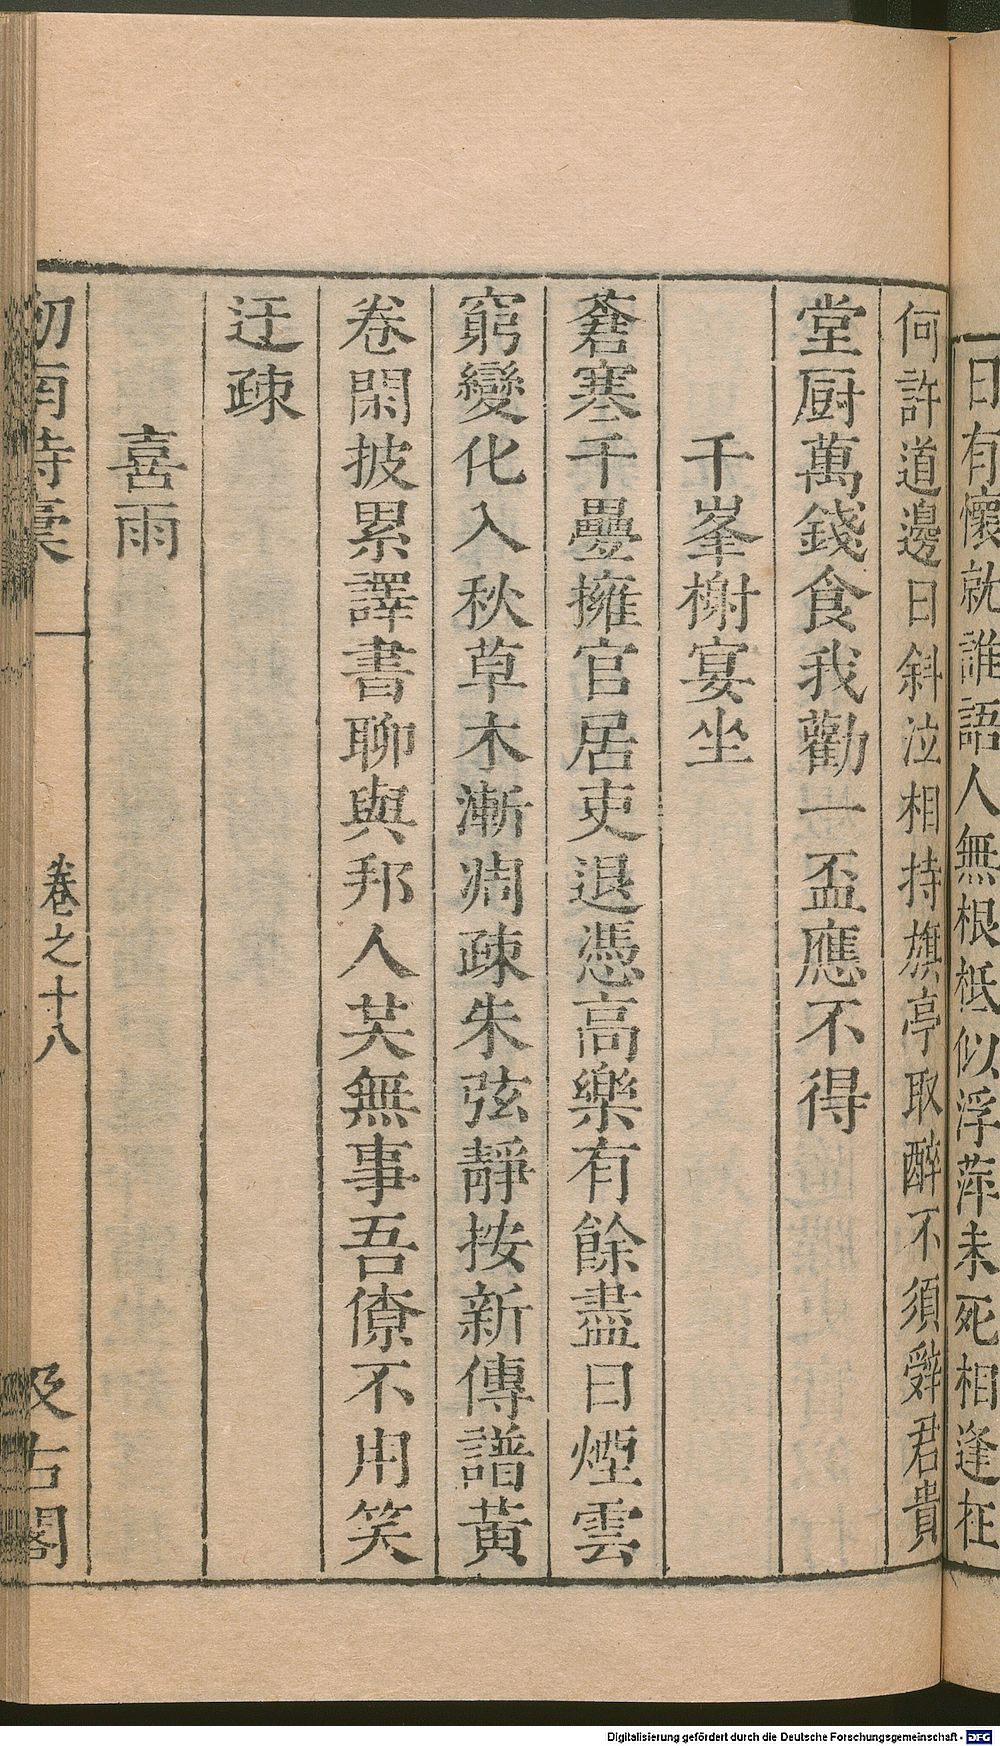 日有懷就誰語人無根柢似浮萍未死相逢在
何許道邊日斜泣相持旗亭取醉不須辭君貴
堂厨萬錢食我勸一盃應不得
千峯榭宴坐
蒼寒千疊擁官居吏退憑高樂有餘盡日煙雲
窮變化入秋草木漸凋疎朱弦靜按新傳譜黃
卷閑披累譯書聊與邦人共無事吾僚不用笑
迂疎
喜雨
劒南詩稾
卷之十八
汲古閣
Digitalisierung gefördert durch die Deutsche Forschungsgemeinschaft - DFG